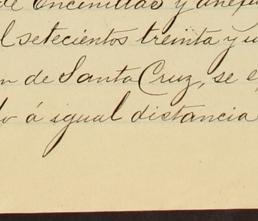 de Encinillas y anexa
l setecientos treinta y u
n de Santa Cruz, se e
o á igual distancia